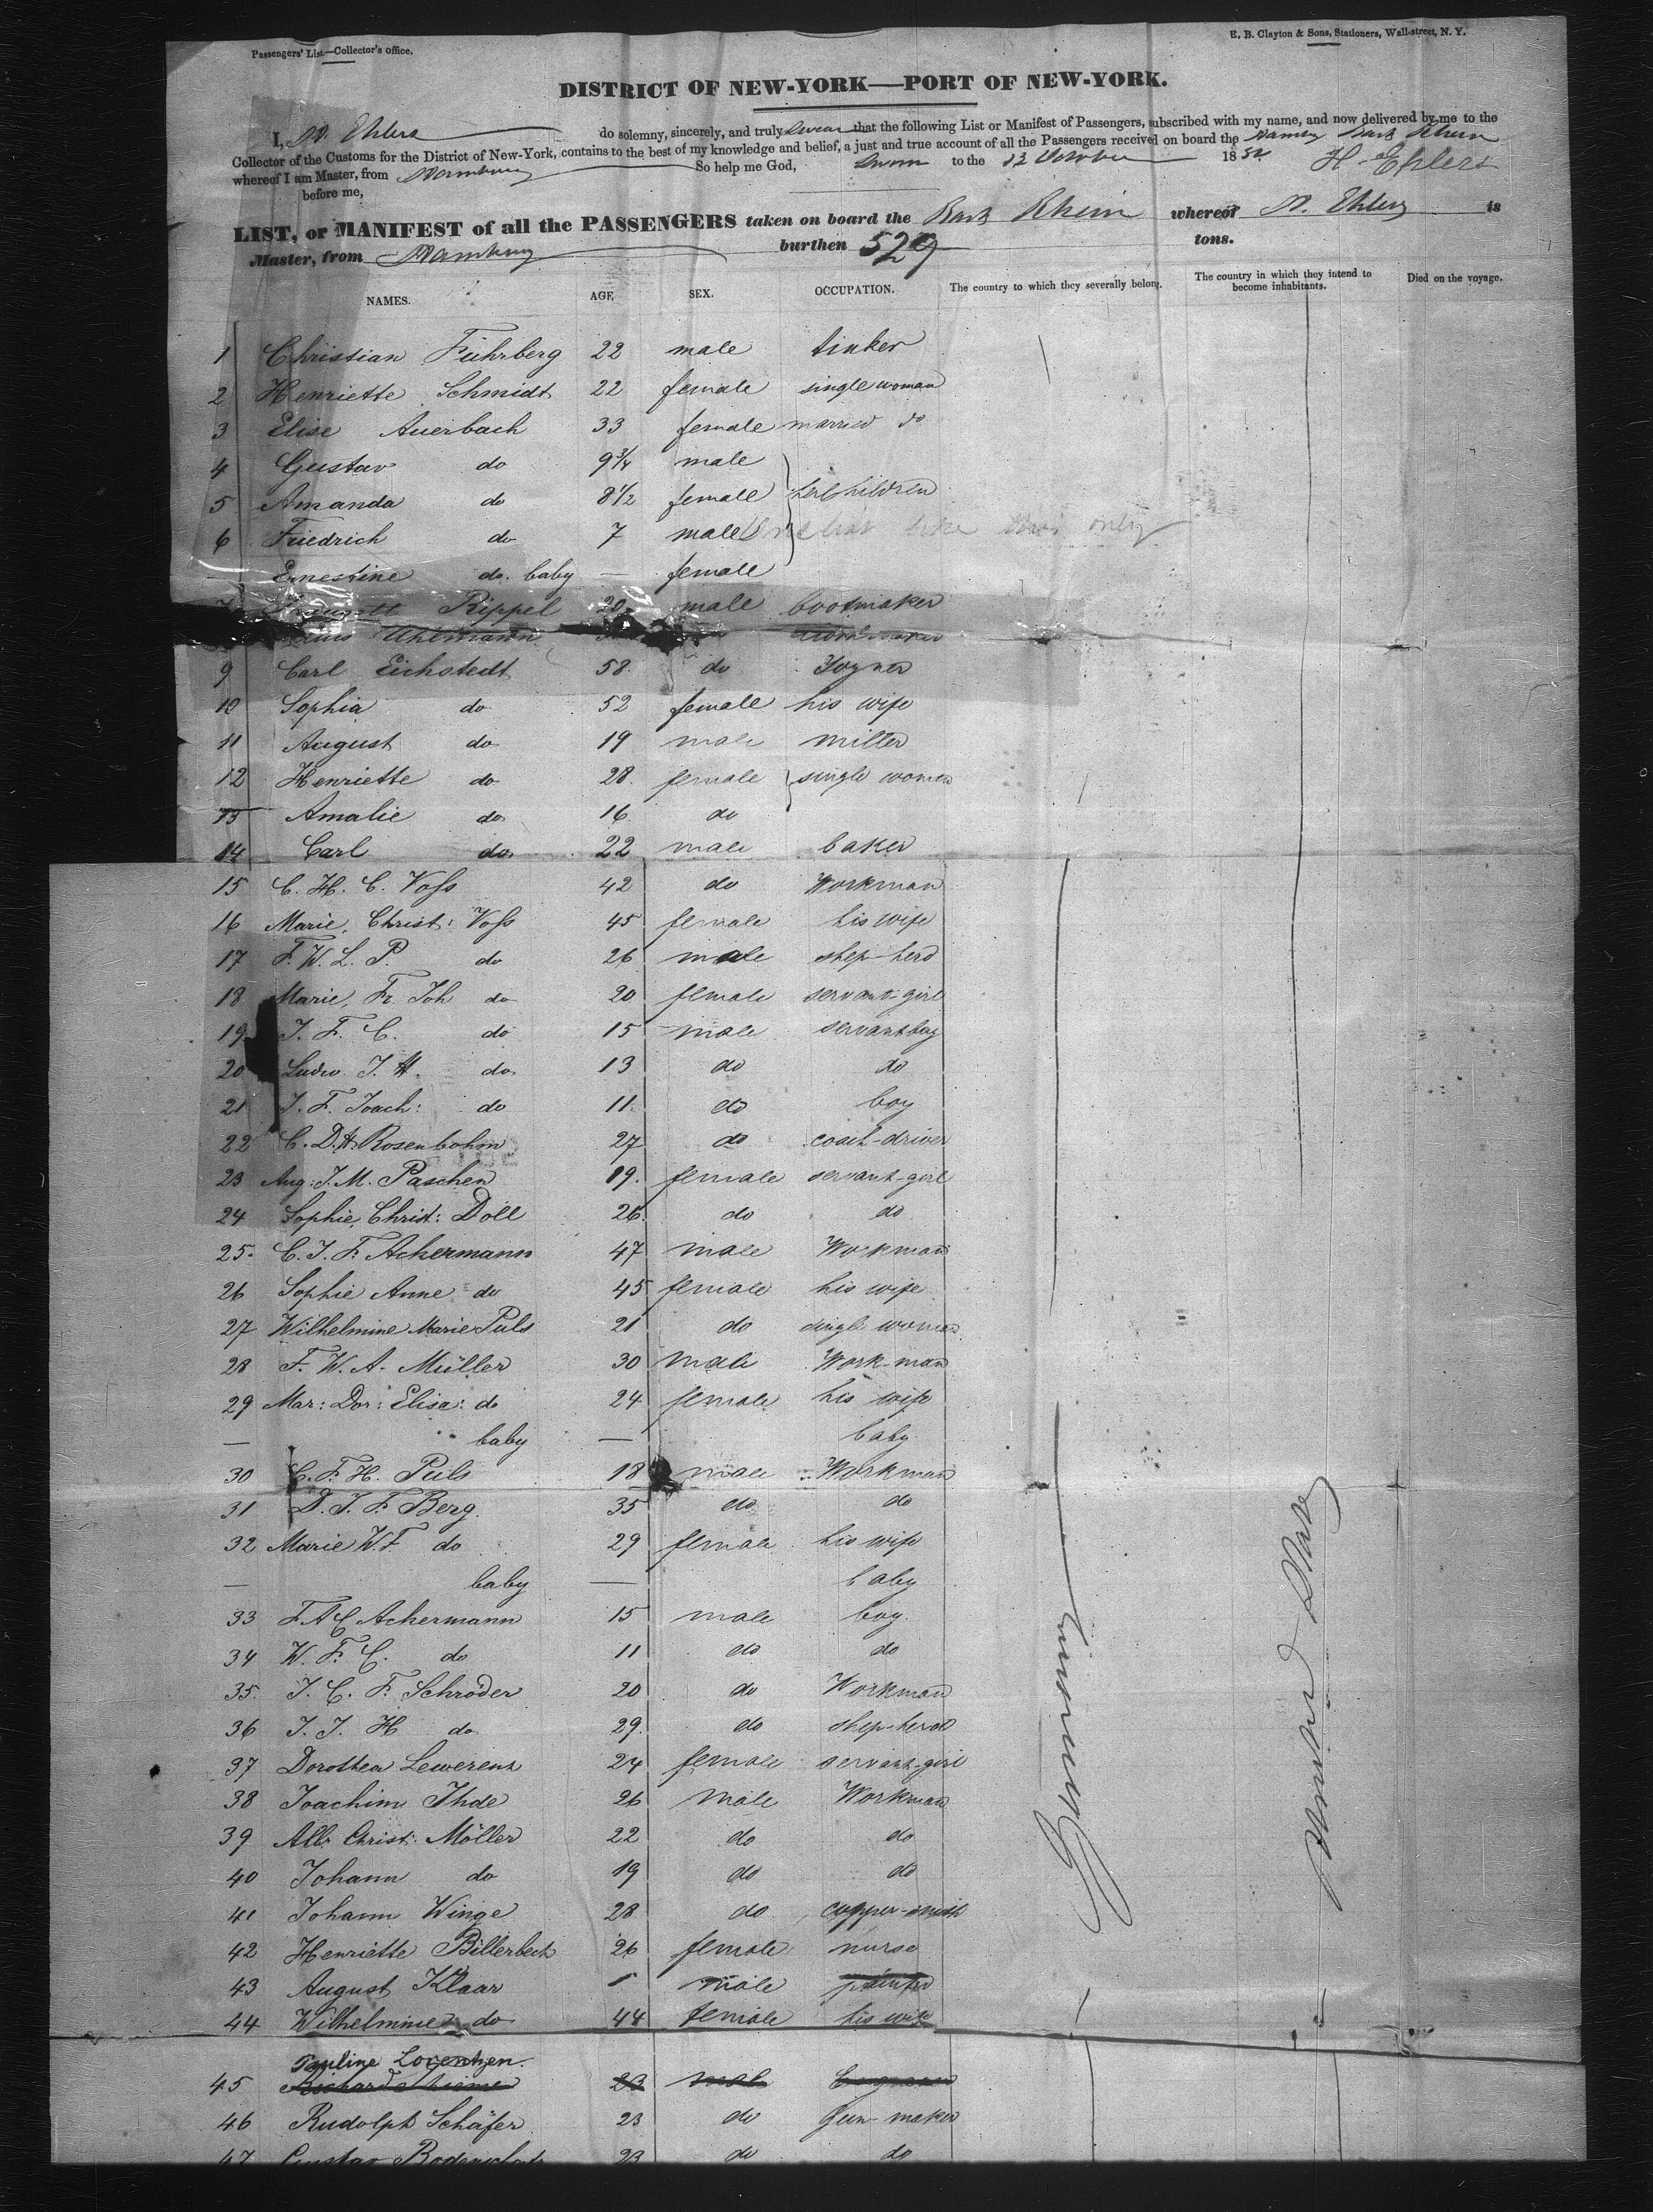 Passengers' List.—Collector's office.
E. B. Clayton & Sons, Stationers, Wall-street, N. Y.
DISTRICT OF NEW-YORK—PORT OF NEW-YORK.
I, H. Ehlers do solemny, sincerely, and truly swear that the following List or Manifest of Passengers, subscribed with my name, and now delivered by me to the
Collector of the Customs for the District of New-York, contains to the best of my knowledge and belief, a just and true account of all the Passengers received on board the Bark Rhein
whereof I am Master, from Hamburg So help me God, Sworn to the 18 H. Ehlers
before me,
LIST, or MANIFEST of all the PASSENGERS taken on board the Bark Rhein whereof H. Ehlers is
Master, from Hamburg burthen 529 tons.
NAMES. AGE SEX. OCCUPATION. The country to which they severally belong. The country in which they intend to become inhabitants. Died on the voyage.
1 Christian Führberg 22 male tinker
2 Henriette Schmidt 22 female single woman
3 Elise Auerbach 33 female married do
4 Gustav do 9 3/4 male
5 Amanda do 8 1/2 female her children
6 Friedrich do 7 male
— Ernestine do. baby — female
Rippel 20 male bootmaker
Uhlmann
9 Carl Eichstedt 58. do Joyner
10 Sophia do 52 female his wife
11 August do 19 male miller
12 Henriette do 28. female single women
13 Amalie do 16. do
14 Carl do. 22 male baker
15 C. H. C. Voss 42 do Workman
16 Marie, Christ: Voss 45 female his wife
17 F. W. L. P. do 26 male shep-herd
18 Marie, Fr. Joh do 20 female servant-girl
19 J. F. C. do 15 male servantboy
20 Ludw. J. H. do. 13 do do
21 J. F. Joach: do 11. do boy
22 C. D. H. Rosenbohm 27 do coach-driver
23 Aug: J. M. Paschen 19. female servant-girl
24 Sophie, Christ: Döll 26. do do
25. C. J. F. Ackermann 47 male Workman
26 Sophie Anne do 45 female his wife
27 Wilhelmine Marie Puls 21 do single woman
28 F. W. A. Müller 30 male Work-man
29 Mar: Dor: Elisa: do 24 female his wife
— baby — baby
30 C. F. H. Puls 18 male Workman
31 D. J. F. Berg. 35 do do
32 Marie W. F. do 29 female his wife
— baby — baby
33 F A C Ackermann 15 male boy.
34 W. F. C. do 11 do do
35. J. C. F. Schröder 20 do Workman
36 J. J. H do 29. do shep-herd
37 Dorothea Lewerenz 24 female servant-girl
38 Joachim Ihde 26 male Workman
39 Alb: Christ: Möller 22 do do
40 Johann do 19 do do
41 Johann Winge 28 do copper-smith
42 Henriette Billerbeck 26 female nurse
43 August Klaar male
44 Wilhelmine do 44 female his wife
Pauline Lorentzen.
45 Richard 23 male
46 Rudolph Schäfer 23 do Gun-maker
47 Gustav 23 do do
Germany
United States